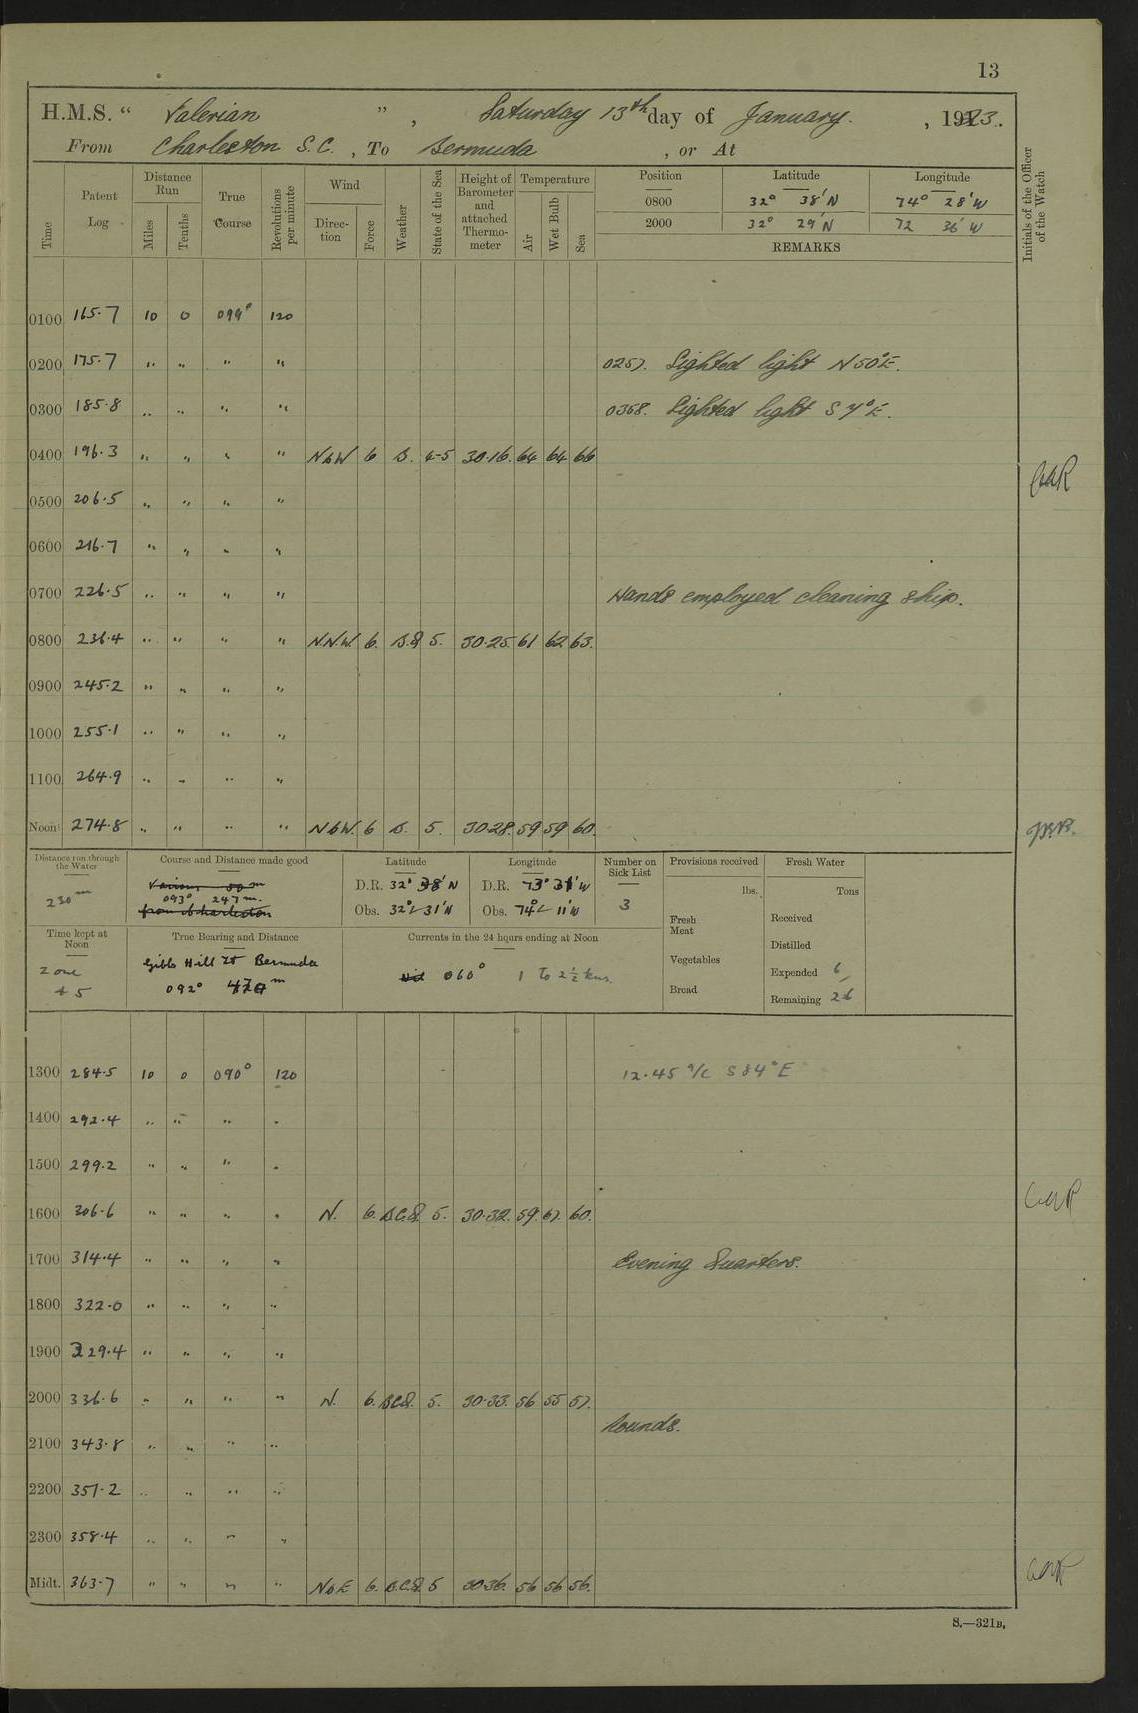 13
H.M.S. " Valerian ", Saturday 13th day of January. , 1923.
From Charleston S.C. , To Bermuda , or At
Time Patent Log Distance Run Miles Tenths True Course Revolutions per minute Wind Direction Force Weather State of the Sea Height of Barometer and attached Thermometer Temperature Air Wet Bulb Sea Position Latitude Longitude Initials of the Officer of the Watch
0800 32° 38' N 74° 28' W
2000 32° 29' N 72 36' W
REMARKS
0100 165.7 10 0 099° 120
0200 175.7 " " " " 0257. Sighted light N 50° E.
0300 185.8 " " " " Sighted light
0400 196.3 " " " " NbW 6 30.16. 64 64 66
GAR
0500 206.5 " " " "
0600 216.7 " " " "
0700 226.5 " " " " Hands employed cleaning ship.
0800 236.4 " " " " N.N.W. 6. 5. 30.25. 61 62 63.
0900 245.2 " " " "
1000 255.1 " " " "
1100 264.9 " " " "
Noon 274.8 " " " " NbW. 6 5. 30.28. 59 59 60.
Distance run through the Water Course and Distance made good Latitude Longitude Number on Sick List Provisions received Fresh Water
230 m 093° 247 m. D.R. 32° 38' N D.R. 73° 31' W 3 lbs. Tons
from Charleston Obs. 32° 31' N Obs. 74° 11' W Fresh Meat Received
Time kept at Noon True Bearing and Distance Currents in the 24 hours ending at Noon Distilled
Zone + 5 Gibbs Hill Lt Bermuda Nil 060° 1 To 2½ kns. Vegetables Expended 6
092° 470 m Bread Remaining 26
1300 284.5 10 0 090° 120 12.45 a/c S 84° E
1400 292.4 " " " "
1500 299.2 " " " "
1600 306.6 " " " " N. 6. 5. 30.32. 59. 60.
1700 314.4 " " " " Evening Quarters.
1800 322.0 " " " "
1900 329.4 " " " "
2000 336.6 " " " " N. 6. 5. 30.33. 56 55 57.
Rounds.
2100 343.8 " " " "
2200 351.2 " " " "
2300 358.4 " " " "
Midt. 363.7 " " " " NbE 6. 5 30.36. 56 56 56.
S.—321B.